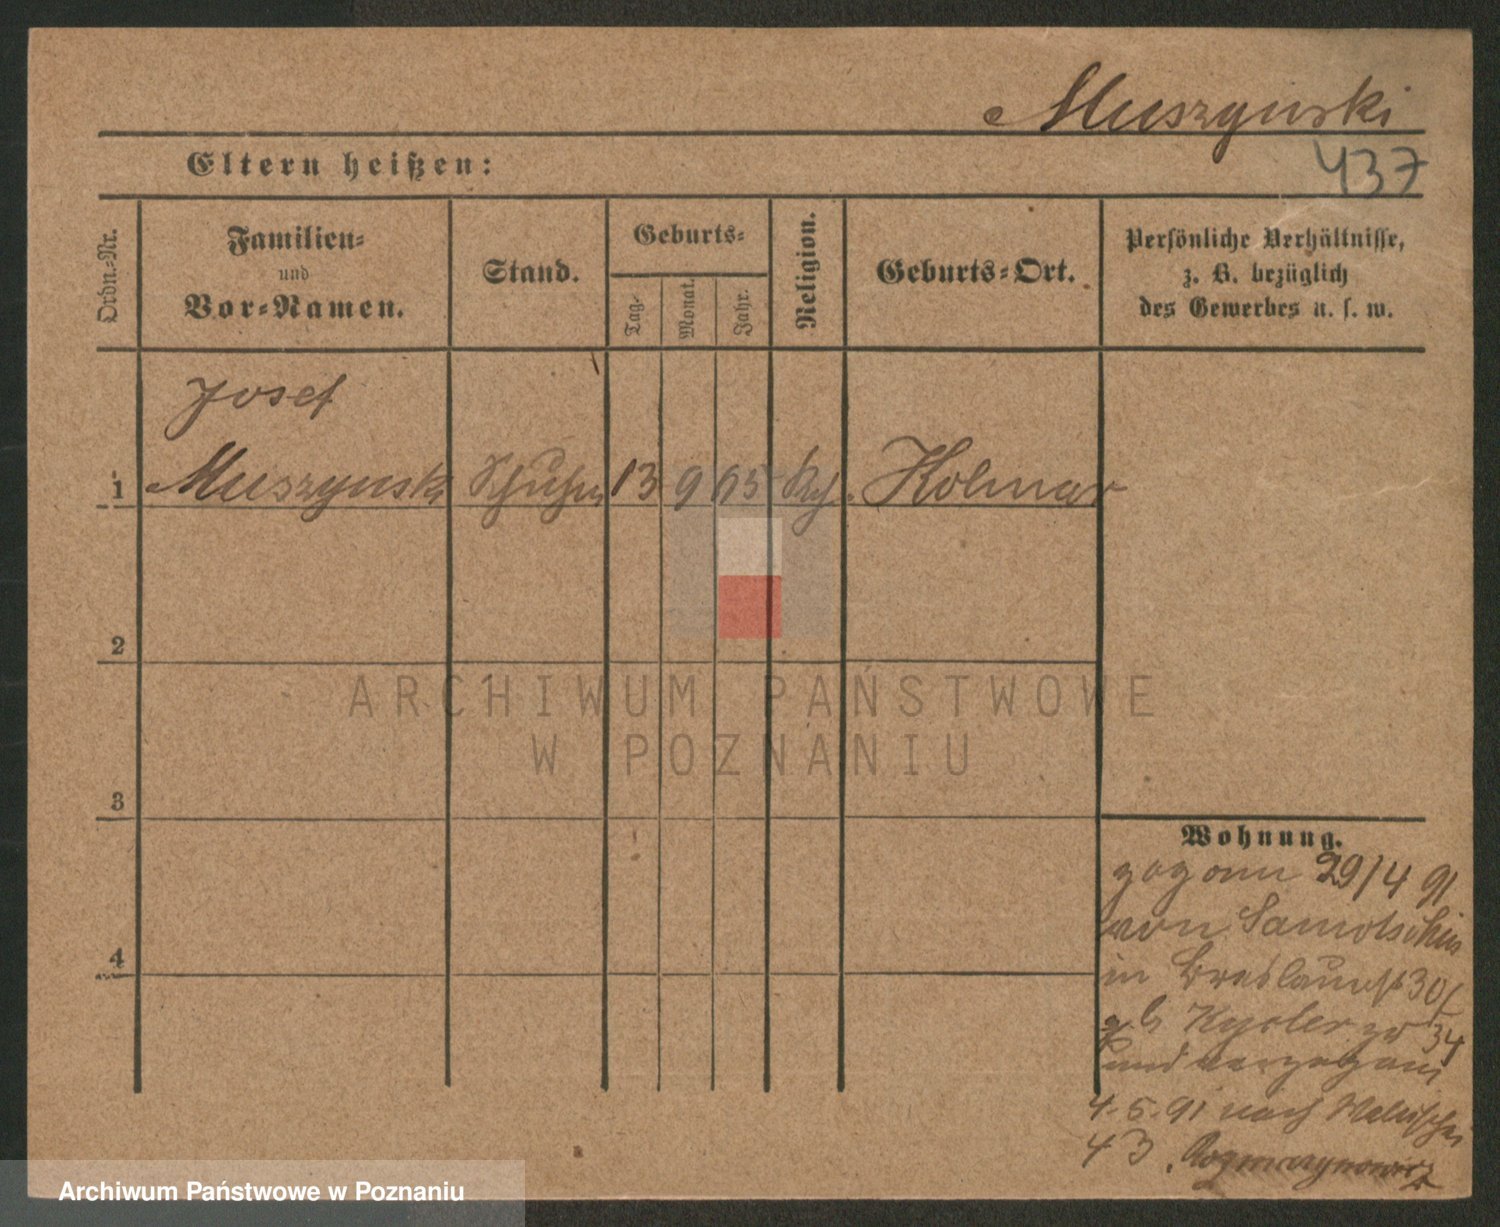 Muszynski
437
Eltern heißen:
Ordn.-Nr.
Familien-
und
Vor-Namen.
Stand.
Geburts-
Tag-
Monat.
Jahr.
Religion.
Geburts-Ort.
Persönliche Verhältnisse,
z. B. bezüglich
des Gewerbes u. s. w.
Josef
1 Muszynski 13 9 65 Kolmar
2
ARCHIWUM PAŃSTWOWE
W POZNANIU
3
Wohnung.
zog am 29/4 91
von
in 30/
zu 34
und verzog am
4.5.91 nach Wallischei
43.
4
Archiwum Państwowe w Poznaniu